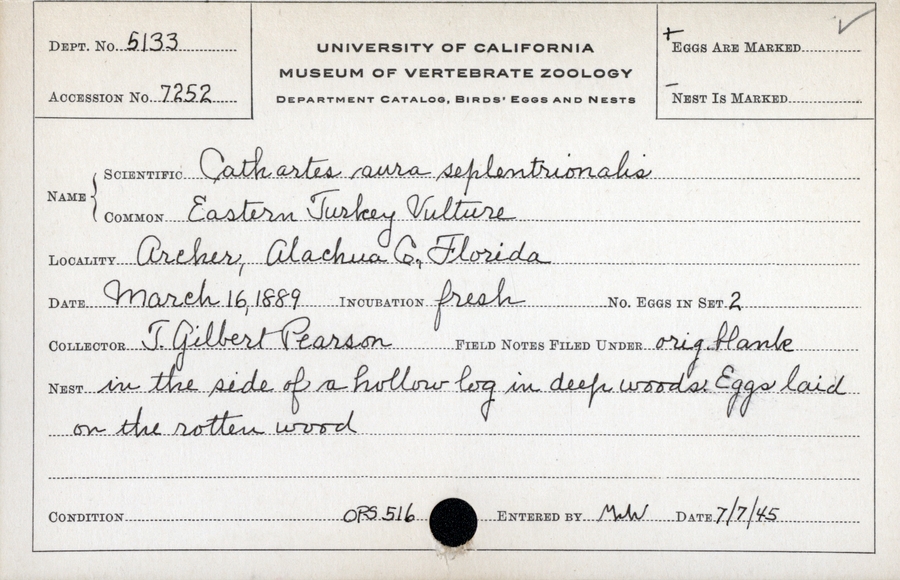 DEPT. No. 5133
ACCESSION No. 7252
UNIVERSITY OF CALIFORNIA
MUSEUM OF VERTEBRATE ZOOLOGY
DEPARTMENT CATALOG, BIRDS' EGGS AND NESTS
+ EGGS ARE MARKED ✓
- NEST IS MARKED
NAME { SCIENTIFIC Cathartes aura septentrionalis
COMMON Eastern Turkey Vulture
LOCALITY Archer, Alachua Co., Florida
DATE March 16, 1889 INCUBATION fresh No. EGGS IN SET 2
COLLECTOR T. Gilbert Pearson FIELD NOTES FILED UNDER orig. blank
NEST in the side of a hollow log in deep woods. Eggs laid
on the rotten wood
CONDITION ORS 516 ENTERED BY DATE 7/7/45